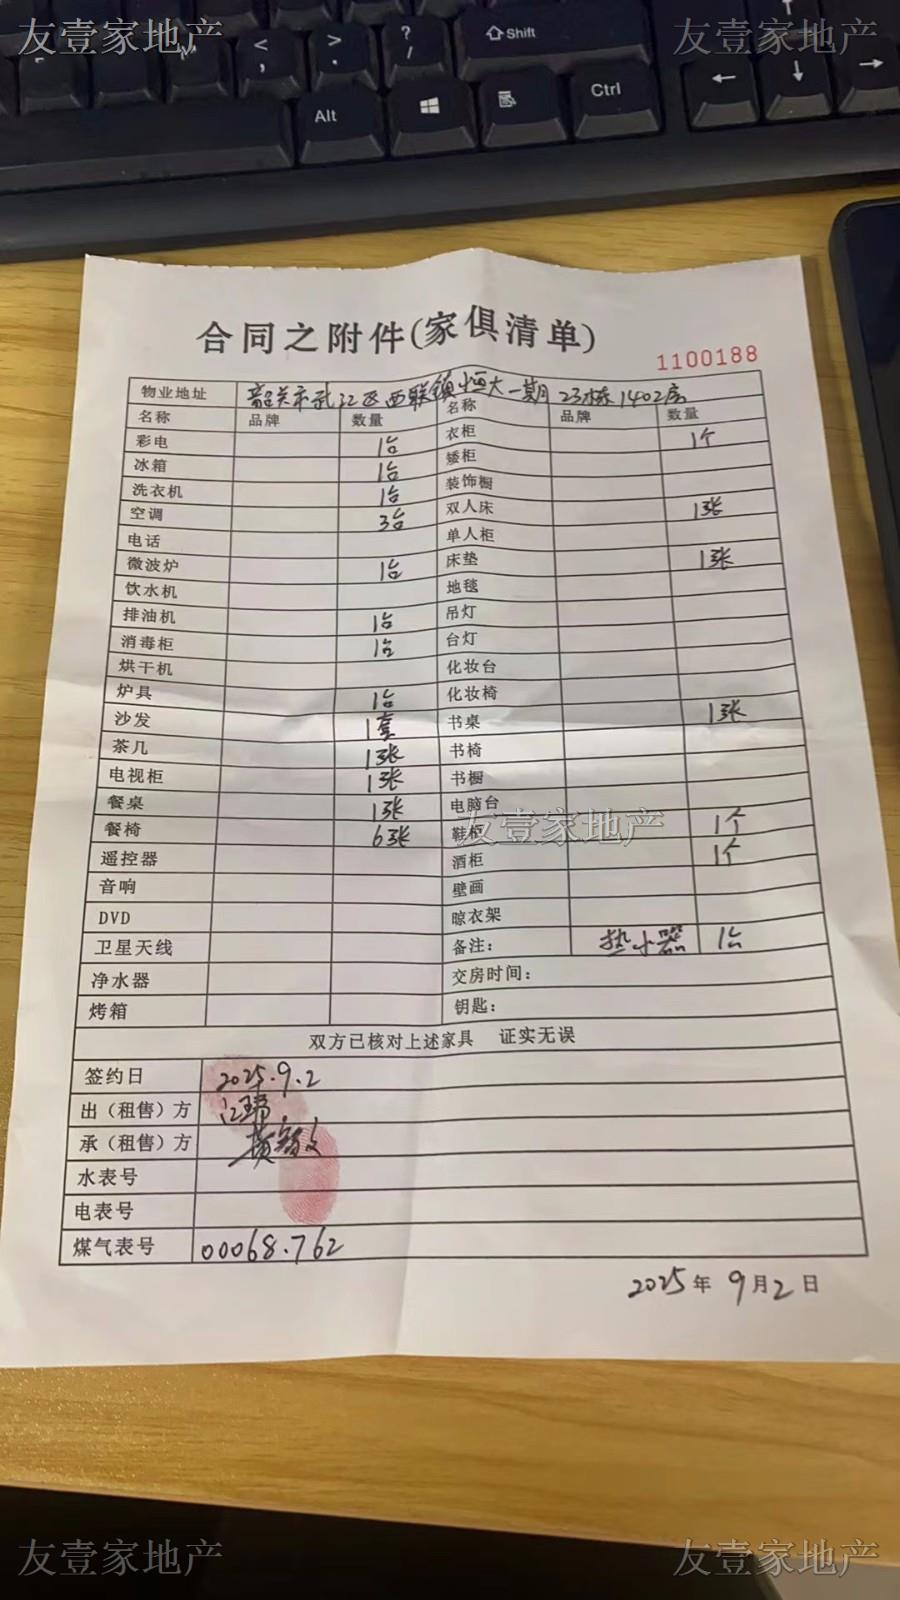 友壹家地产 友壹家地产
< , > . ? / Shift
Alt Ctrl
合同之附件(家俱清单)
1100188
物业地址 韶关市武江区西联镇恒大一期23栋1402房
名称 品牌 数量 名称 品牌 数量
彩电 1台 衣柜 1个
冰箱 1台 矮柜
洗衣机 1台 装饰橱
空调 3台 双人床 1张
电话 单人柜
微波炉 1台 床垫 1张
饮水机 地毯
排油机 1台 吊灯
消毒柜 1台 台灯
烘干机 化妆台
炉具 1台 化妆椅
沙发 1套 书桌 1张
茶几 1张 书椅
电视柜 1张 书橱
餐桌 1张 电脑台
餐椅 6张 鞋柜 1个
友壹家地产
遥控器 酒柜 1个
音响 壁画
DVD 晾衣架
卫星天线 备注: 热水器 1台
净水器 交房时间:
烤箱 钥匙:
双方已核对上述家具 证实无误
签约日 2025.9.2
出（租售）方 江
承（租售）方 黄
水表号
电表号
煤气表号 00068.762
2025年9月2日
友壹家地产 友壹家地产